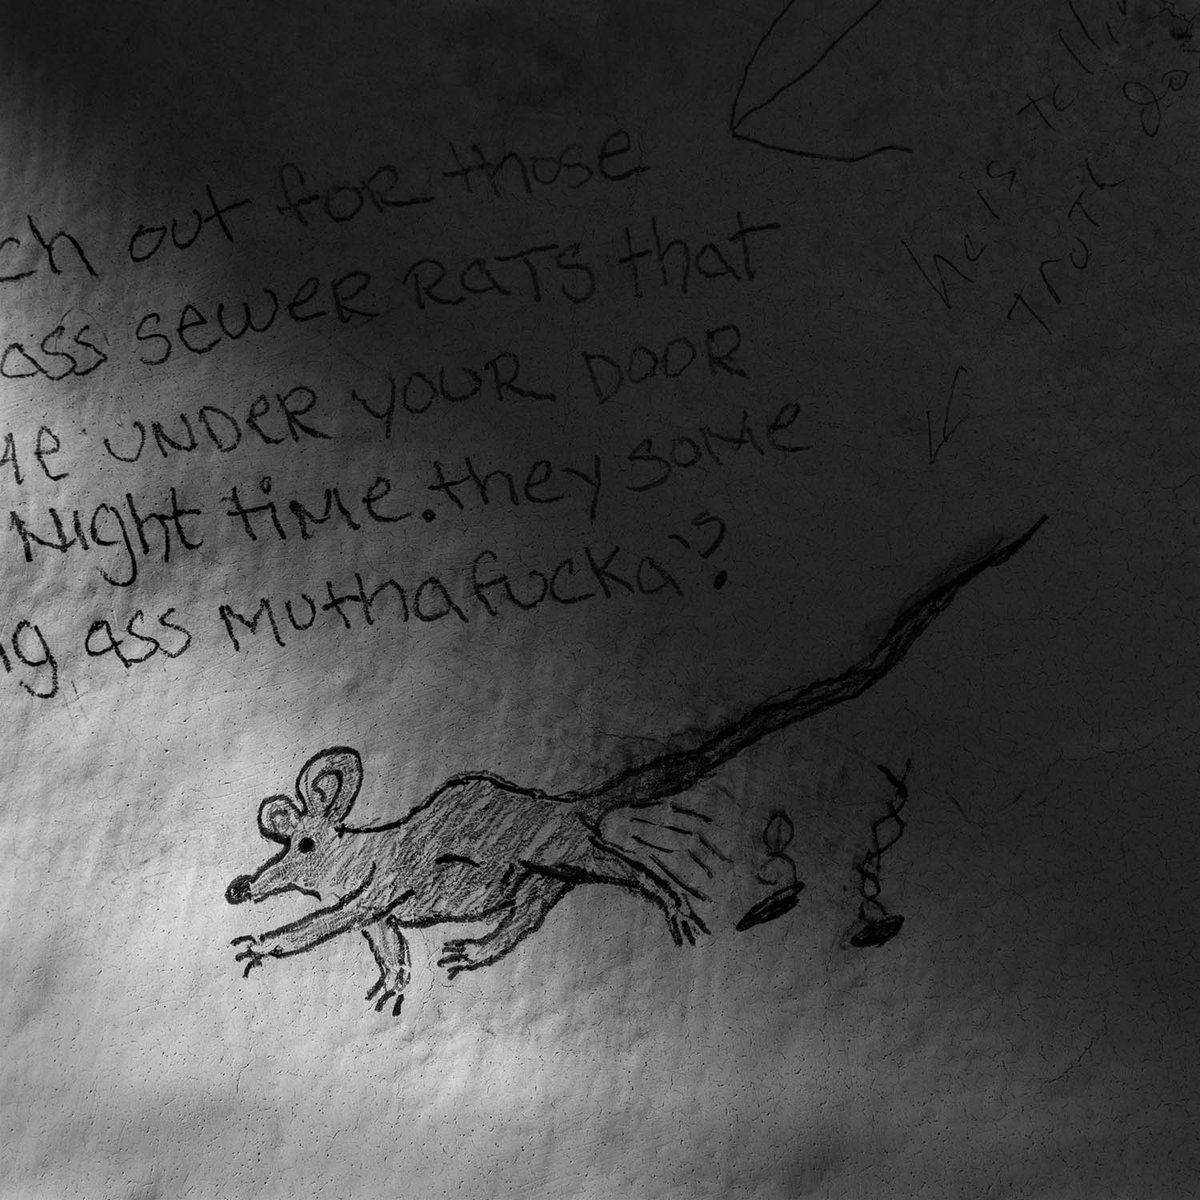 ch out for those
ass seweR RaTS that
Me UNDeR YOUR DOOR
Night tiMe. they soMe
ng ass Muthafucka'?
he is tellin
TRuTh go